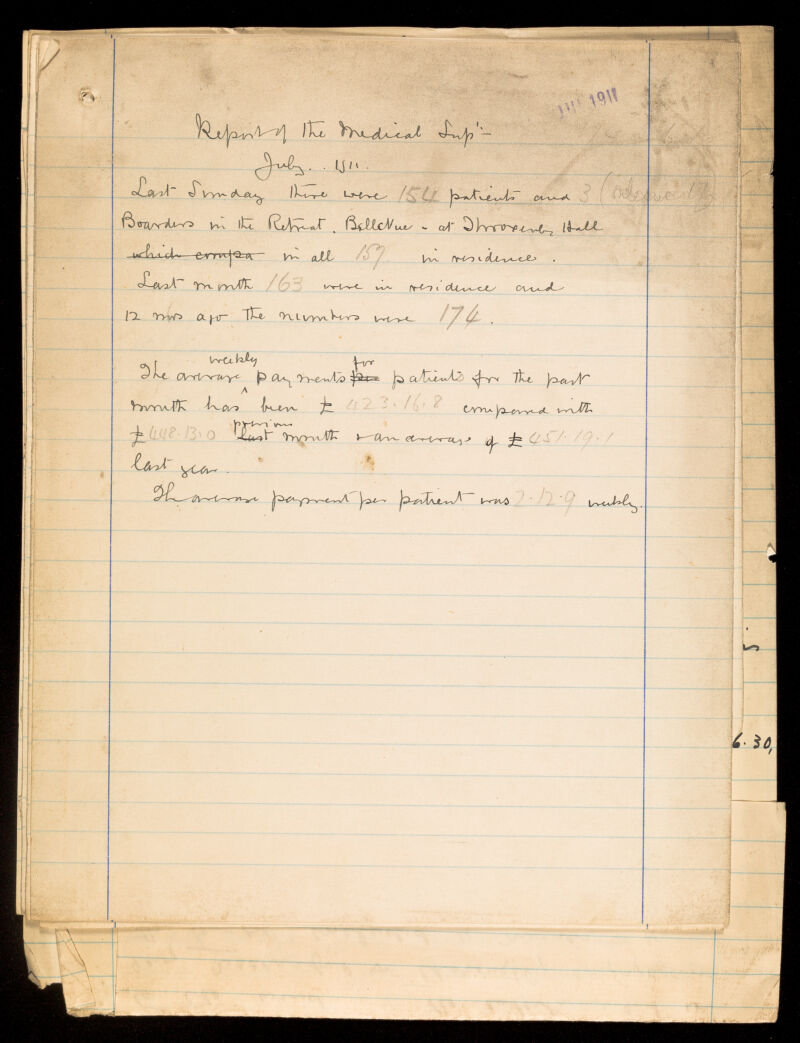 JUL 1911
Report of the Medical Supt:-
July .. 1911.
Last Sunday there were 154 patients and 3
Boarders in the Retreat. BelleVue - at Throxenby Hall
which compa in all 157 in residence.
Last month 163 were in residence and
12 mos ago the numbers were 174.
weekly for
The average payments per patients for the past
month has been £ 423.16.8 compared with
previous
£ 448.13.0 last month & an average of £ 451.19.1
last year.
The average payment per patient was 2.12.9 weekly.
6.30,